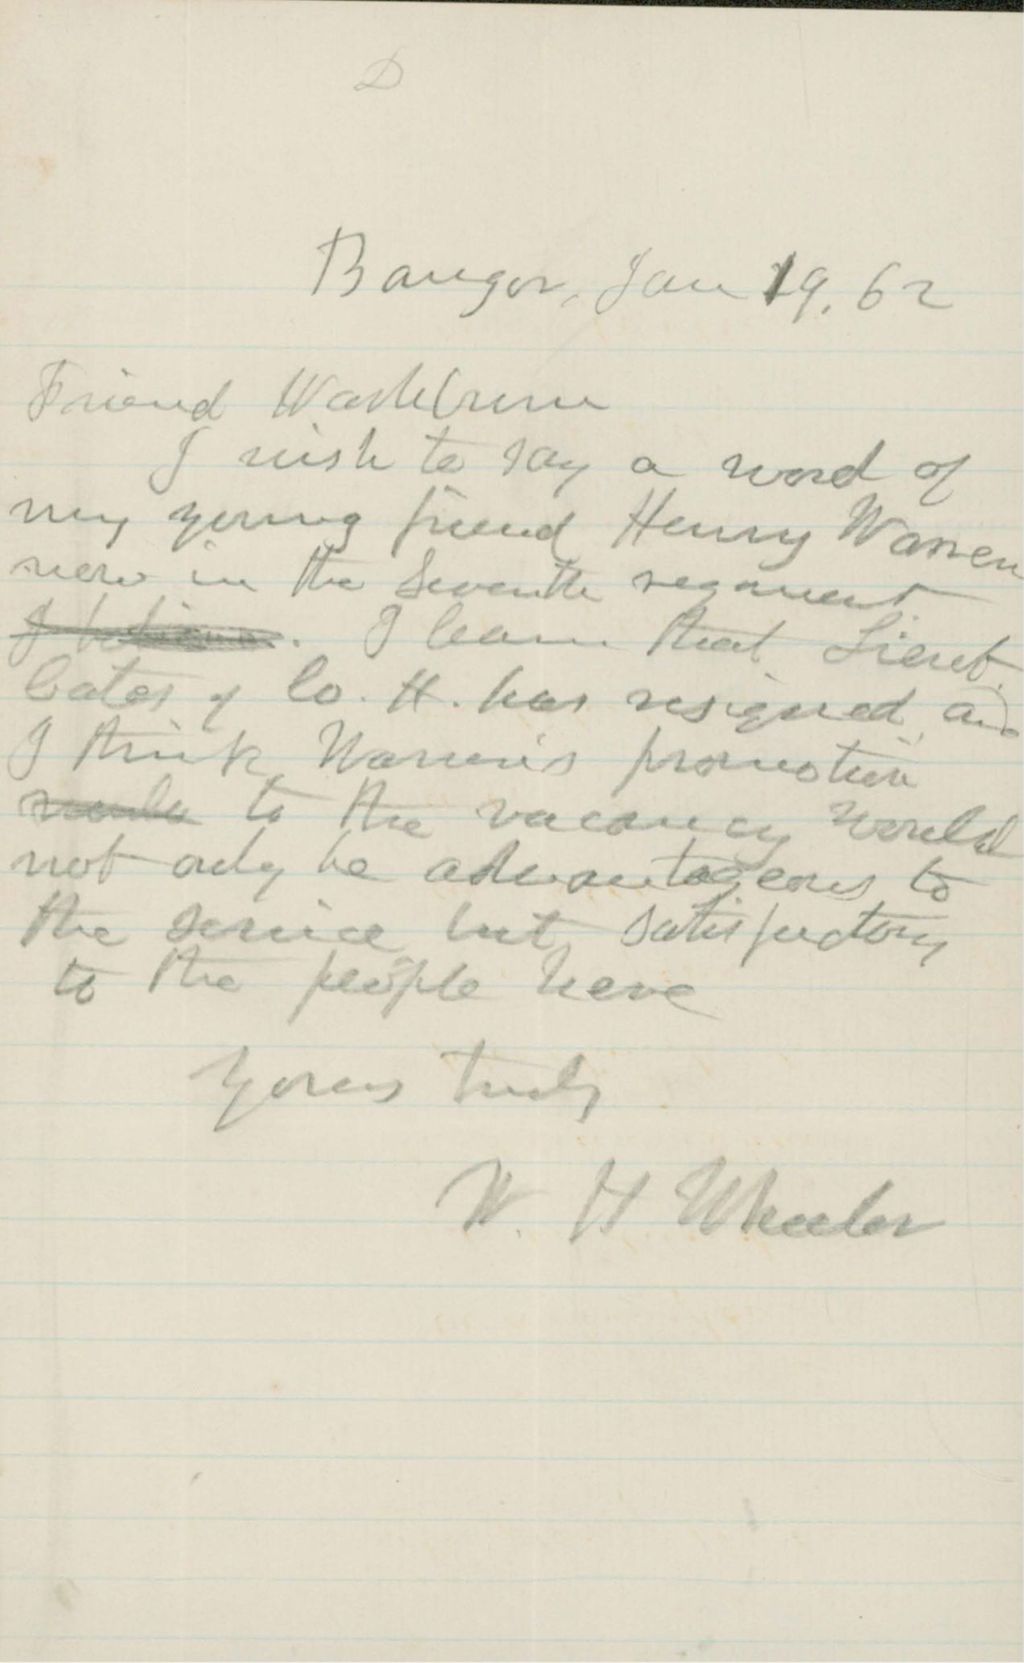 D
Bangor, Jan 19. 62
Friend Washburn
I wish to say a word of
my young friend Henry Warren
now in the Seventh regiment
I believe. I learn that Lieut.
Cates of Co. H. has resigned and
I think Warren's promotion
would to the vacancy would
not only be advantageous to
the service but satisfactory
to the people here
Yours truly
W. H Wheeler